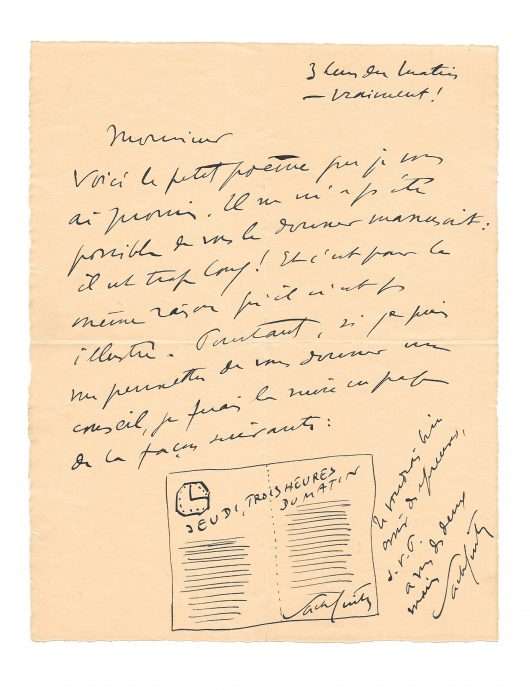 3 heures du matin
— vraiment !
Monsieur
Voici le petit poème que je vous
ai promis. Il ne m'a pas été
possible de vous le donner manuscrit :
il est trop long ! Et c'est pour la
même raison qu'il n'est pas
illustré. Pourtant, si je puis
me permettre de vous donner un
conseil, je ferais la mise en page
de la façon suivante :
JEUDI, TROIS HEURES
DU MATIN
Sacha Guitry
Je voudrais bien
avoir des épreuves,
s.v.p.
à vous des deux
mains
Sacha Guitry